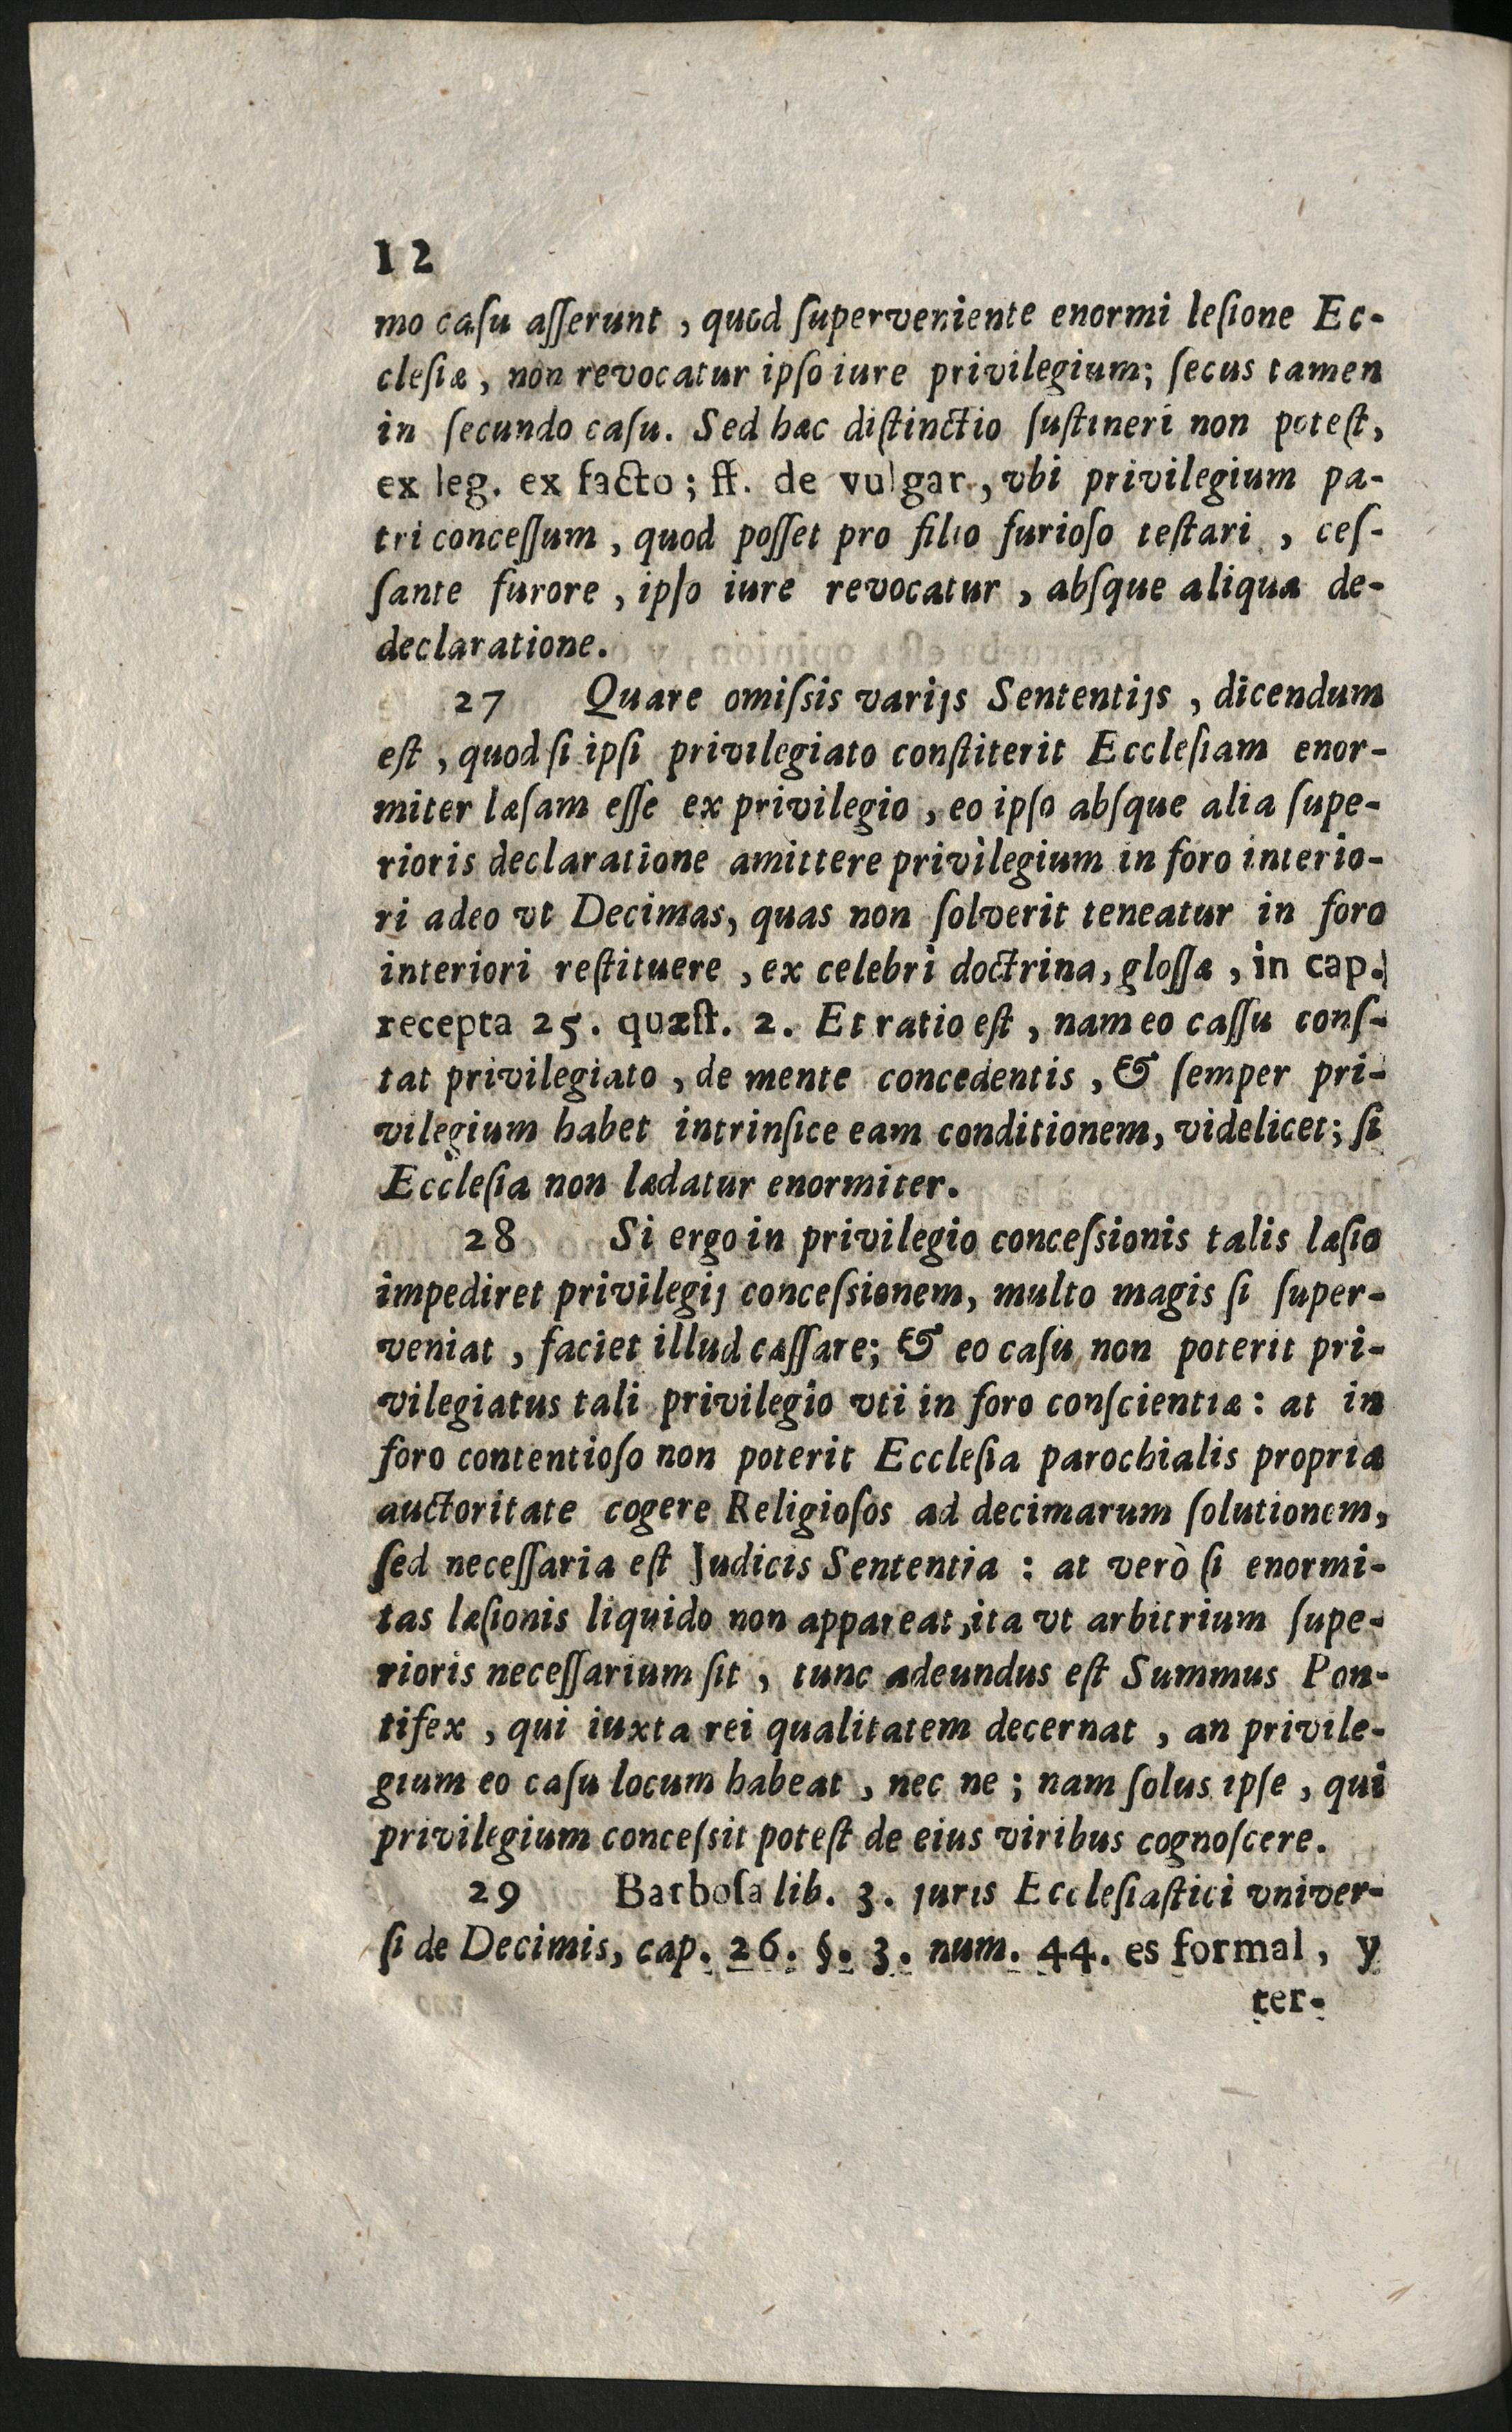 12
mo caſu aſſerunt, quod ſuperveniente enormi leſione Ec-
cleſiæ, non revocatur ipſo iure privilegium; ſecus tamen
in ſecundo caſu. Sed hæc diſtinctio ſuſtineri non poteſt,
ex leg. ex facto; ff. de vulgar., vbi privilegium pa-
tri conceſſum, quod poſſet pro filio furioſo teſtari, ceſ-
ſante furore, ipſo iure revocatur, abſque aliqua de-
declaratione.
27 Quare omiſsis varijs Sententijs, dicendum
eſt, quod ſi ipſi privilegiato conſtiterit Eccleſiam enor-
miter læſam eſſe ex privilegio, eo ipſo abſque alia ſupe-
rioris declaratione amittere privilegium in foro interio-
ri adeo vt Decimas, quas non ſolverit teneatur in foro
interiori reſtituere, ex celebri doctrina, gloſſæ, in cap.
recepta 25. quæſt. 2. Et ratio eſt, nam eo caſſu conſ-
tat privilegiato, de mente concedentis, & ſemper pri-
vilegium habet intrinſice eam conditionem, videlicet; ſi
Eccleſia non lædatur enormiter.
28 Si ergo in privilegio conceſsionis talis læſio
impediret privilegij conceſsionem, multo magis ſi ſuper-
veniat, faciet illud caſſare; & eo caſu non poterit pri-
vilegiatus tali privilegio vti in foro conſcientiæ: at in
foro contentioſo non poterit Eccleſia parochialis propria
auctoritate cogere Religioſos ad decimarum ſolutionem,
ſed neceſſaria eſt Judicis Sententia: at verò ſi enormi-
tas læſionis liquido non appareat, ita vt arbitrium ſupe-
rioris neceſſarium ſit, tunc adeundus eſt Summus Pon-
tifex, qui iuxta rei qualitatem decernat, an privile-
gium eo caſu locum habeat, nec ne; nam ſolus ipſe, qui
privilegium conceſsit poteſt de eius viribus cognoſcere.
29 Barboſa lib. 3. juris Eccleſiaſtici vniver-
ſi de Decimis, cap. 26. §. 3. num. 44. es formal, y
ter-